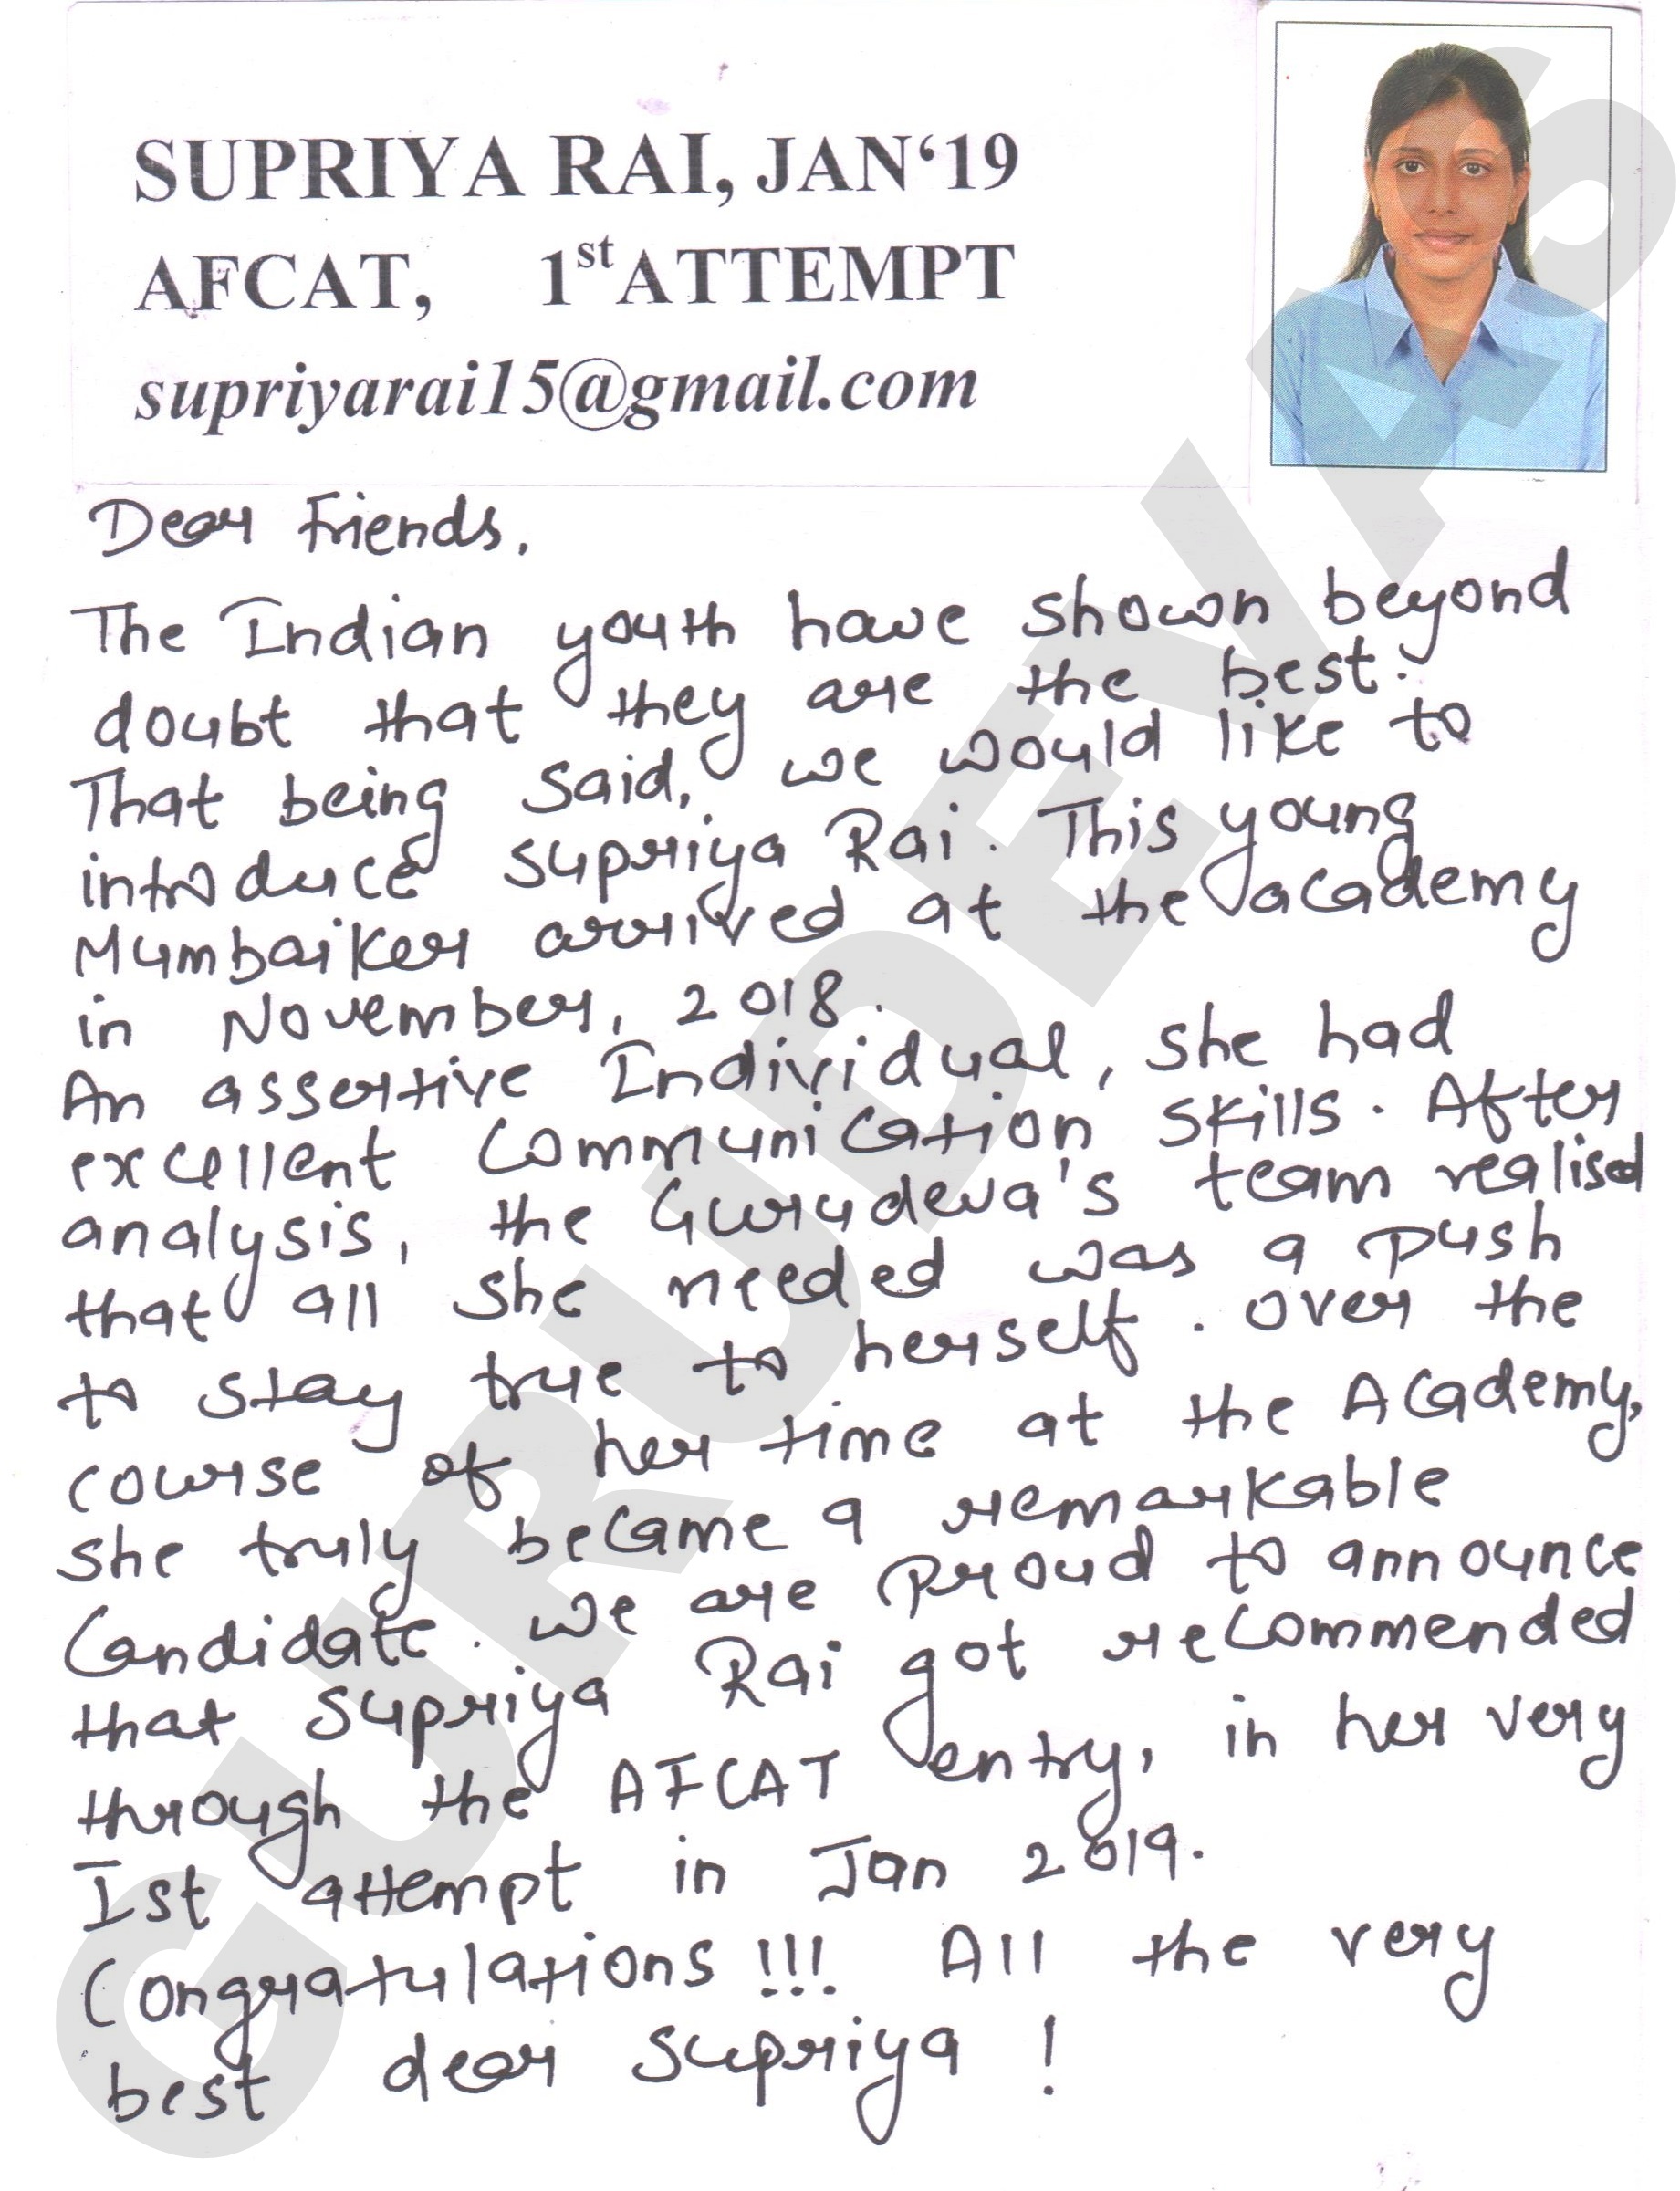 SUPRIYA RAI, JAN‘19
AFCAT, 1st ATTEMPT
supriyarai15@gmail.com
Dear Friends,
The Indian youth have shown beyond
doubt that they are the best.
That being said, we would like to
introduce Supriya Rai. This young
Mumbaiker arrived at the academy
in November, 2018.
An assertive Individual, she had
excellent Communication skills. After
analysis, the Gurudeva's team realised
that all she needed was a push
to stay true to herself. Over the
course of her time at the Academy,
she truly became a remarkable
Candidate. We are proud to announce
that Supriya Rai got recommended
through the AFCAT entry, in her very
Ist attempt in Jan 2019.
Congratulations !!! All the very
best dear Supriya !
GURUDEVAS